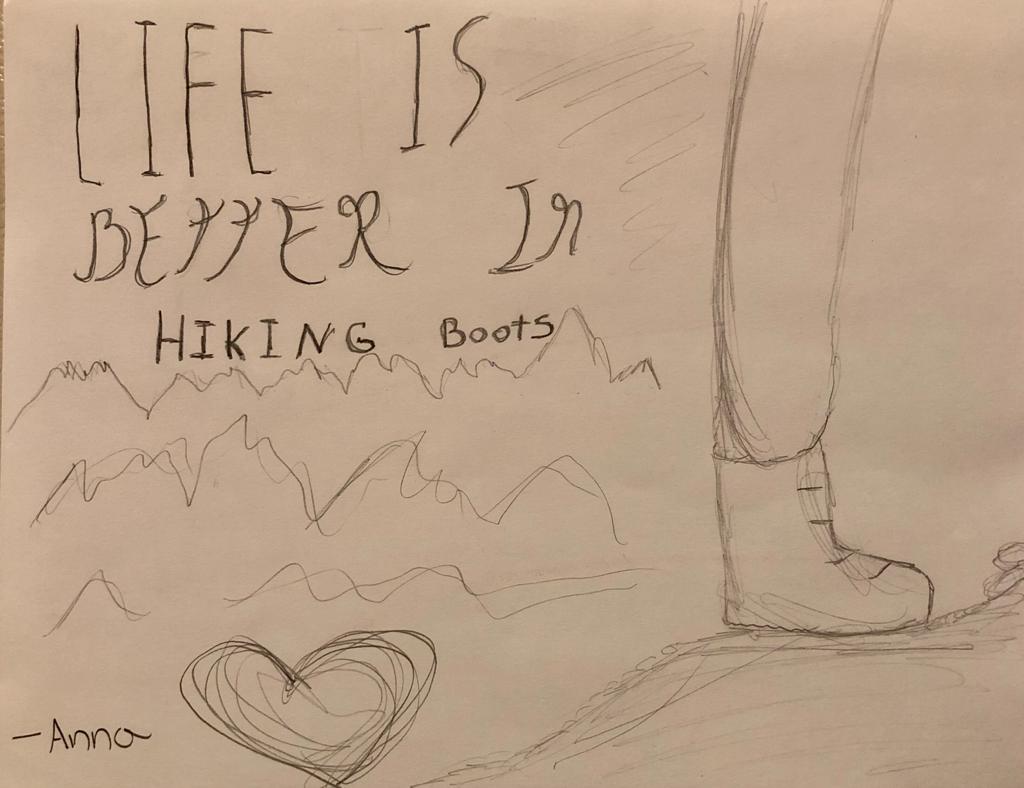 LIFE IS
BETTER In
HIKING Boots
-Anna